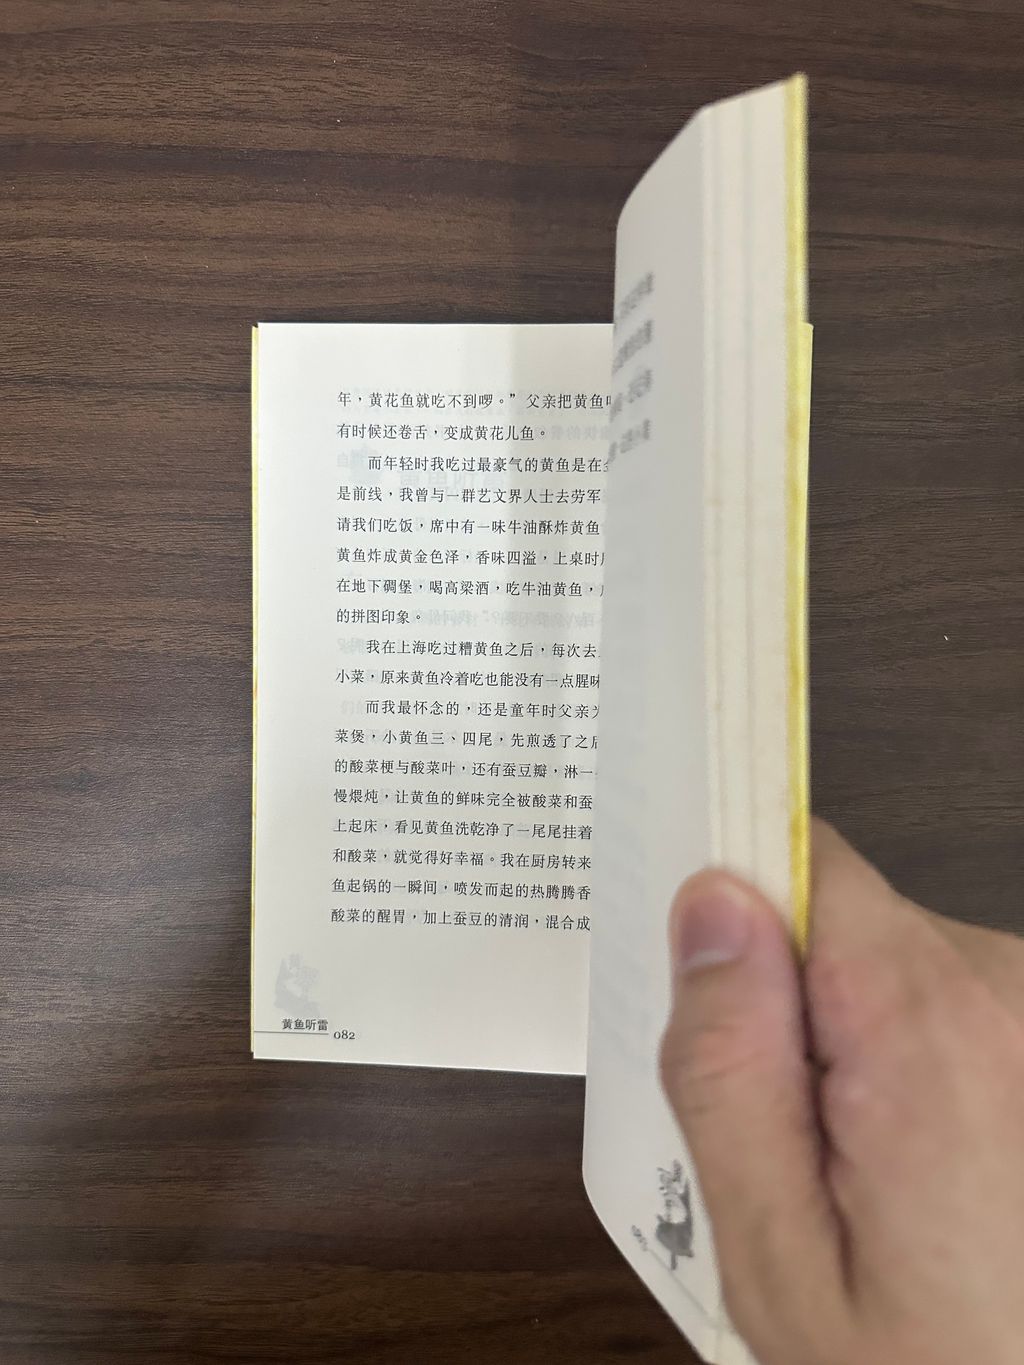 年，黄花鱼就吃不到啰。”父亲把黄鱼
有时候还卷舌，变成黄花儿鱼。
而年轻时我吃过最豪气的黄鱼是在
是前线，我曾与一群艺文界人士去劳军
请我们吃饭，席中有一味牛油酥炸黄鱼
黄鱼炸成黄金色泽，香味四溢，上桌时
在地下碉堡，喝高梁酒，吃牛油黄鱼，
的拼图印象。
我在上海吃过糟黄鱼之后，每次去
小菜，原来黄鱼冷着吃也能没有一点腥味
而我最怀念的，还是童年时父亲
菜煲，小黄鱼三、四尾，先煎透了之后
的酸菜梗与酸菜叶，还有蚕豆瓣，淋一
慢煨炖，让黄鱼的鲜味完全被酸菜和蚕
上起床，看见黄鱼洗乾净了一尾尾挂着
和酸菜，就觉得好幸福。我在厨房转来
鱼起锅的一瞬间，喷发而起的热腾腾香
酸菜的醒胃，加上蚕豆的清润，混合成
黄鱼听雷
082